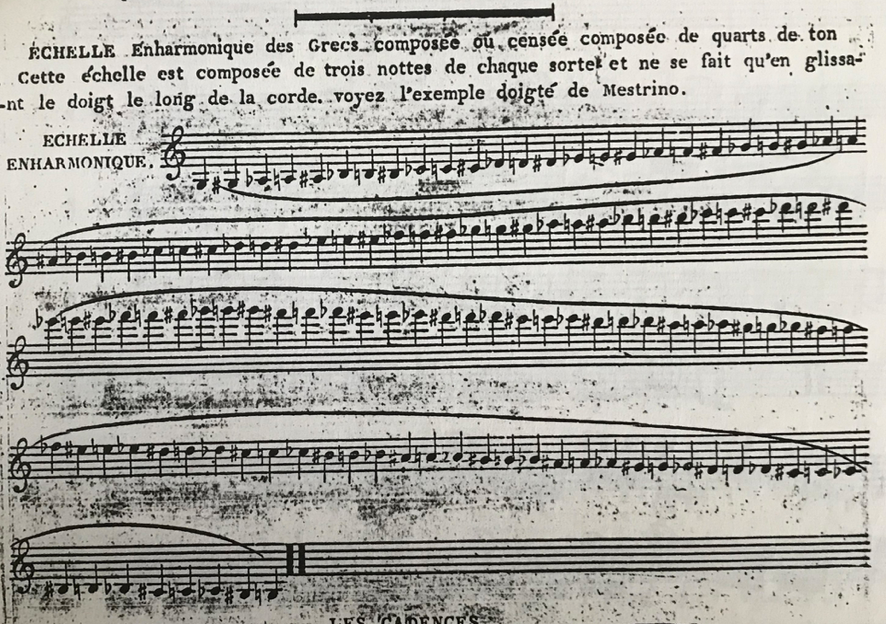 ÉCHELLE Enharmonique des Grecs composée ou censée composée de quarts de ton
Cette échelle est composée de trois nottes de chaque sorte et ne se fait qu'en glissa-
-nt le doigt le long de la corde. voyez l'exemple doigté de Mestrino.
ECHELLE
ENHARMONIQUE.
LES CADENCES